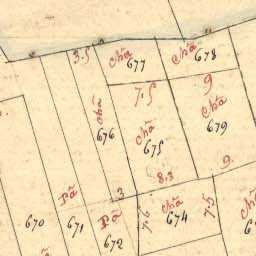 3.5 chã 677
chã 678
7.5
9
chã 676
chã 679
chã 675
8.3
9.
Pã 671
3
Pã 672
670
7.6
chã 674
7.5